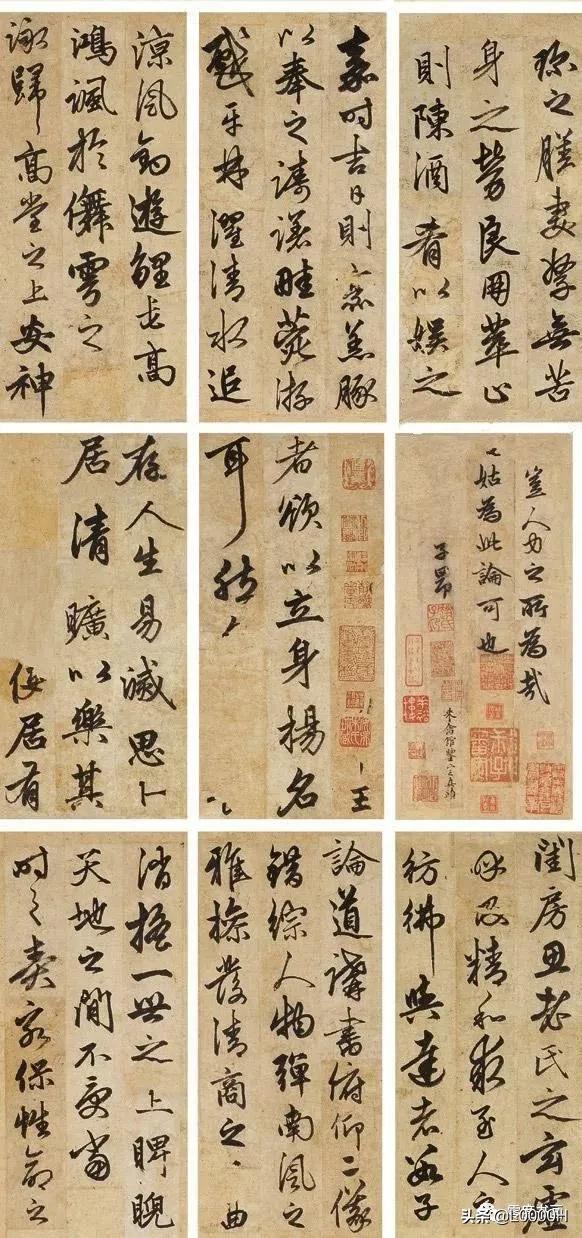 珎之膳妻孥無苦
身之勞良朋萃止
則陳酒肴以娛之
嘉时吉日則烹羔豚
以奉之躊躇畦苑游
戲平林濯清水追
涼風釣遊鯉弋高
鴻諷於儛雩之
詠歸高堂之上安神
豈人力之所為哉
姑為此論可也
子昂
王
者頌以立身揚名
耳然〻
存人生易滅思卜
居清曠以樂其
居有
閨房思老氏之玄虛
呼吸精和求至人之
彷彿與達者數子
論道講書俯仰二儀
錯綜人物彈南風之
雅操發清商之〻曲
消搖一世之上睥睨
天地之間不受當
时之責永保性命之
头条 @L0000H